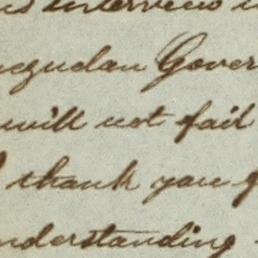 interview
Gover
will not fail
thank you
nderstanding